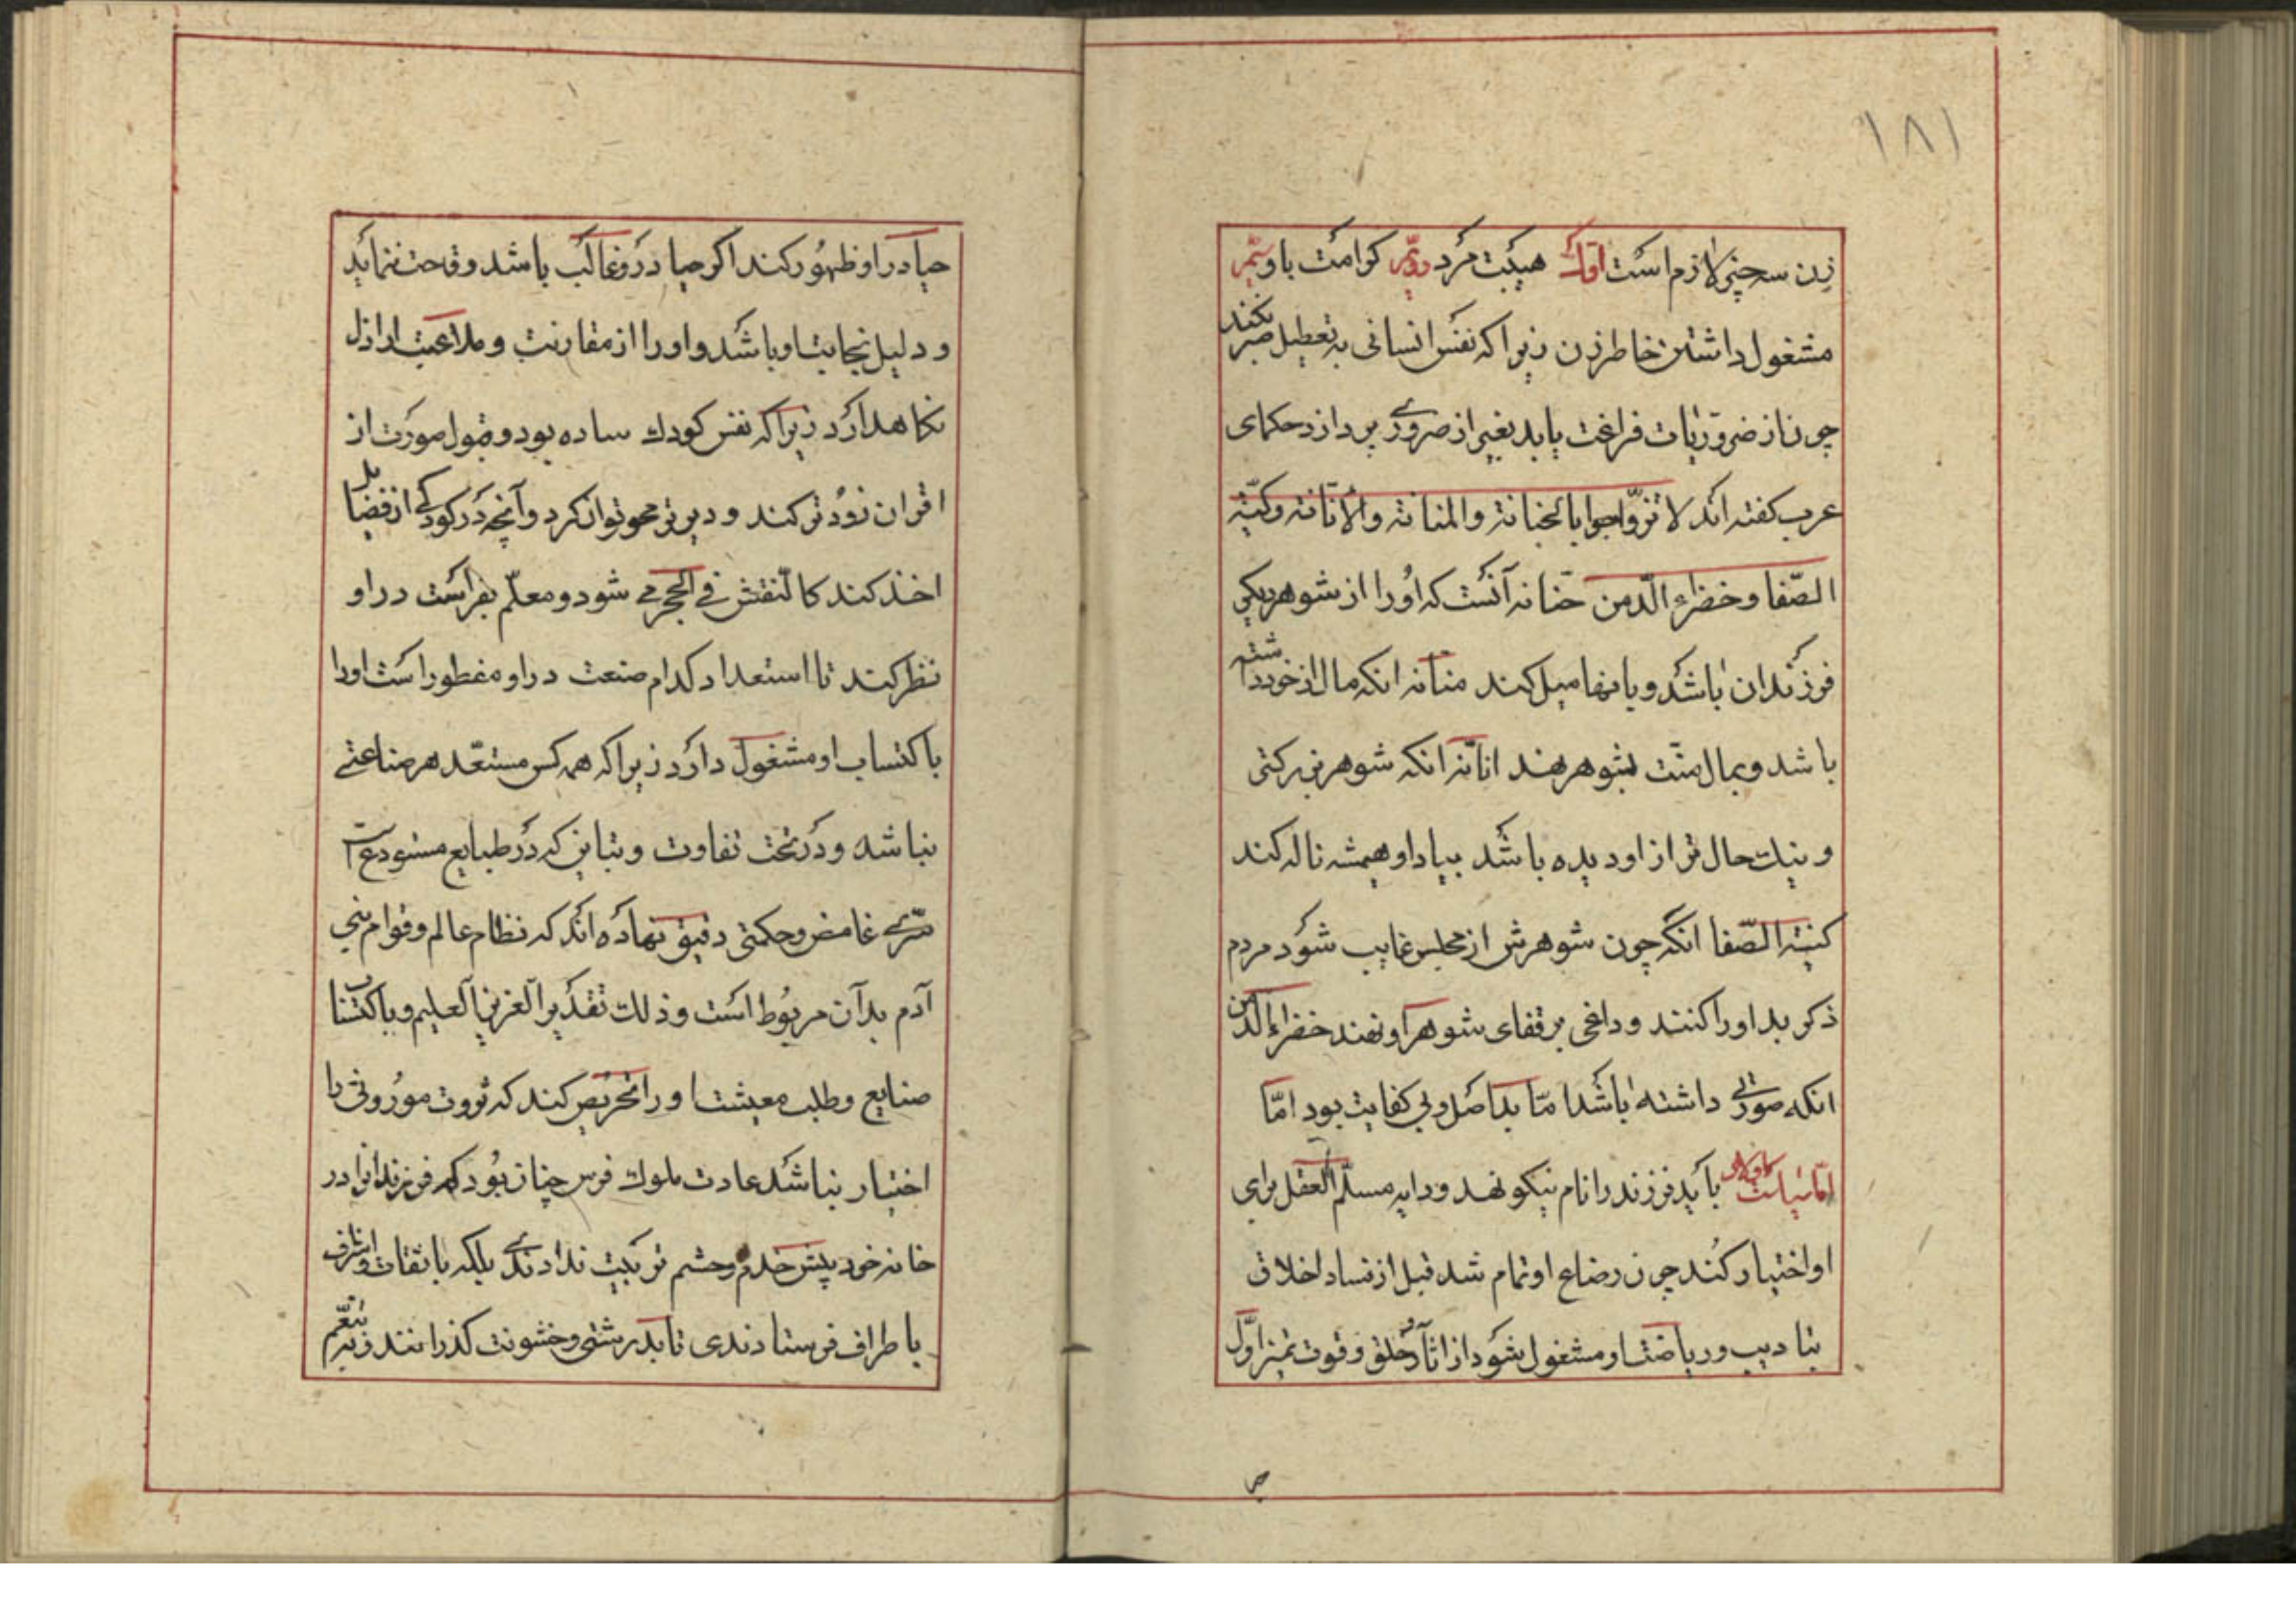 ۱۸۱
زن سه چیز لازم است اول هیبت مرد دویّم کرامت با و سیّم
مشغول داشتن خاطر زن زیرا که نفس انسانی به تعطیل صبر نکند
چون از ضروریات فراغت یابد بغیر از ضروری پردازد حکمای
عرب کفته اند لا تزوّاجوا بالحنانة والمنانة والانانة وکیّة
الصّفا و خضراء الدّمن حنانه آنست که اورا از شوهر دیکر
فرزندان باشد و بانها میل کند منانه انکه مال از خود داشته
باشد و بمال منّت بشوهر نهد انانه انکه شوهر بزرکتر
و نیك حال تر از او دیده باشد بیاد او همیشه ناله کند
کیتة الصّفا انکه چون شوهرش از مجلس غایب شود مردم
ذکر بد او را کنند و داغی بر قفای شوهر او نهند خضراء الدمن
انکه صورتی داشته باشد امّا بد اصل و بی کفایت بود امّا
امّا سیاست اولاد باید فرزند را نام نیکو نهد و دایه مسلّم العقل برای
او اختیار کند چون رضاع او تمام شد قبل از فساد اخلاق
بتادیب و ریاضت او مشغول شود از اثار خلق و قوت تمیز اوّل
حیا در او ظهور کند اکر حیا در و غالب باشد و قحت ننماید
و دلیل نجابت او باشد و او را از مقارنت و ملاعبت اراذل
نکاهدارد زیرا که نفس کودك ساده بود و قبول صورت از
اقران زود تر کند و دیر تر محو توان کرد و آنچه در کودکی از فضایل
اخذ کند کالنّقش فی الحجر می شود و معلّم بفراست در او
نظر کند تا استعداد کدام صنعت در او مفطور است او را
باکتساب او مشغول دارد زیرا که همه کس مستعدّ هر صناعتی
نباشد و در تحت تفاوت و تباین که در طبایع مستودعت
سرّی غامض و حکمتی دقیق نهاده اند که نظام عالم و قوام بنی
آدم بدآن مربوط است و ذلك تقدیر العزیز العلیم و باکتساب
صنایع و طلب معیشت او را تحریص کند که ثروت موروثی را
اختیار نباشد عادت ملوك فرس چنان بود که فرزندانرا در
خانه خود پیش خدم و حشم تربیت ندادندی بلکه با ثقات و اشراف
باطراف فرستادندی تا بدرشتی و خشونت کذرانند و تنعّم